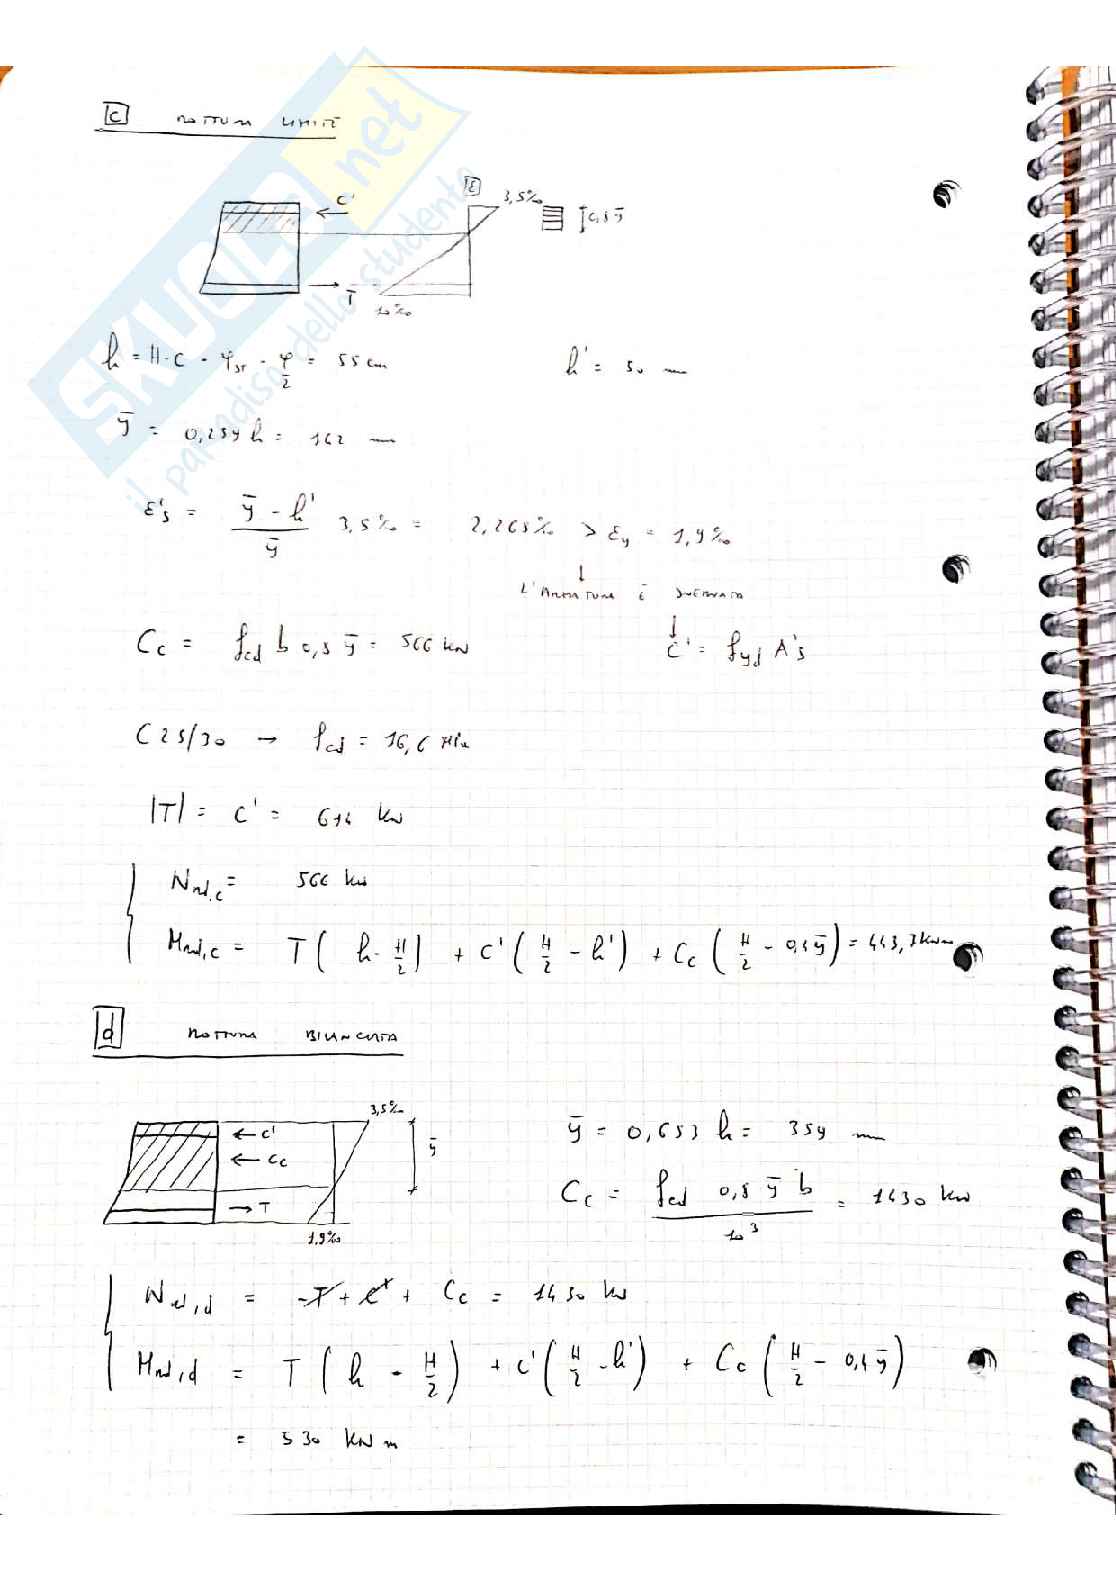 c ROTTURA LIMITE
C'
ε 3,5‰
0,8ȳ
T
10‰
h = H - c - φst - φ/2 = 55 cm h' = 50 mm
ȳ = 0,259 h = 142 mm
ε's = (ȳ - h')/ȳ 3,5‰ = 2,265‰ > εy = 1,9‰
↓
L'ARMATURA È SNERVATA
↓
Cc = fcd b 0,8 ȳ = 566 kN C' = fyd A's
C25/30 → fcd = 16,6 MPa
|T| = C' = 614 kN
NRd,c = 566 kN
MRd,c = T ( h - H/2 ) + C' ( H/2 - h' ) + Cc ( H/2 - 0,4ȳ ) = 443,3 kNm
d ROTTURA BILANCIATA
3,5‰
← C'
← Cc
ȳ
→ T
1,9‰
ȳ = 0,653 h = 359 mm
Cc = (fcd 0,8 ȳ b)/10³ = 1430 kN
NRd,d = -T + C' + Cc = 1430 kN
MRd,d = T ( h - H/2 ) + C' ( H/2 - h' ) + Cc ( H/2 - 0,4ȳ )
= 530 kN m
SKUOLA.net
il paradiso dello studente